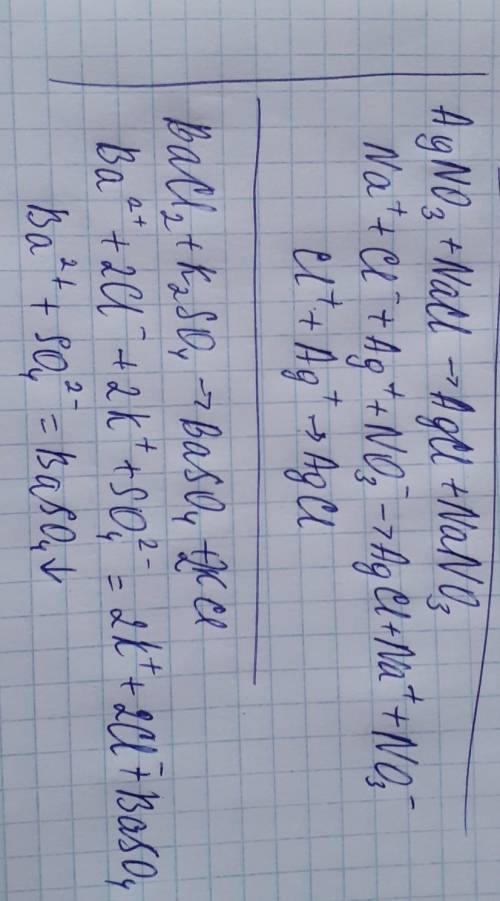 AgNO₃ + NaCl → AgCl + NaNO₃
Na⁺ + Cl⁻ + Ag⁺ + NO₃⁻ → AgCl + Na⁺ + NO₃⁻
Cl⁺ + Ag⁺ → AgCl
BaCl₂ + K₂SO₄ → BaSO₄ + 2KCl
Ba²⁺ + 2Cl⁻ + 2K⁺ + SO₄²⁻ = 2K⁺ + 2Cl⁻ + BaSO₄
Ba²⁺ + SO₄²⁻ = BaSO₄↓